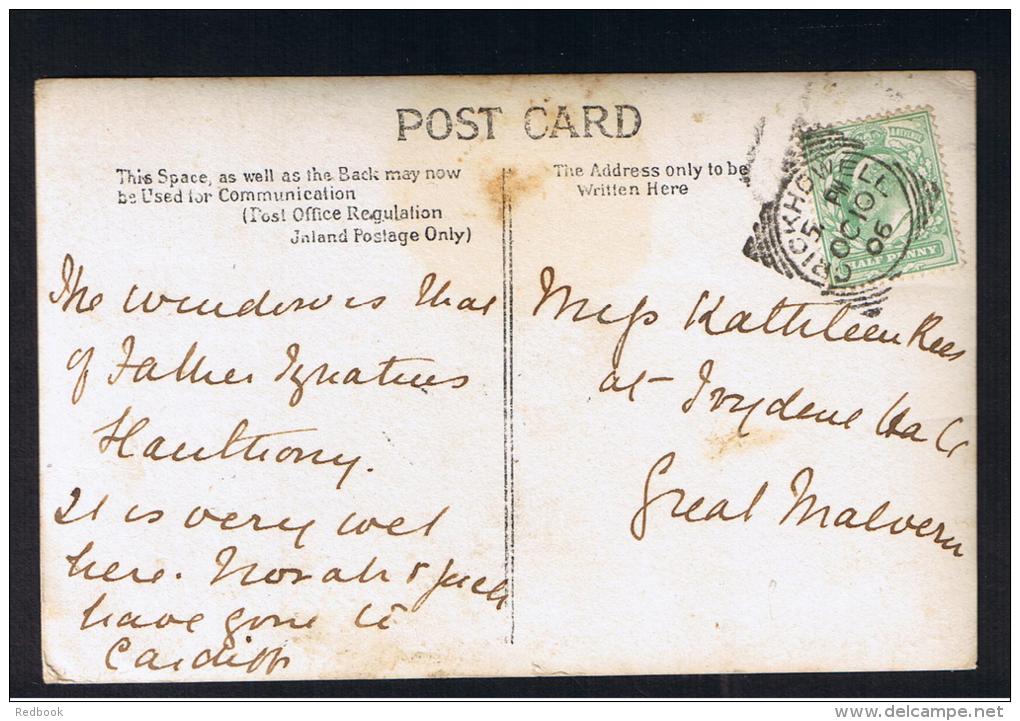 POST CARD
This Space, as well as the Back may now
be Used for Communication
(Post Office Regulation
Inland Postage Only)
The Address only to be
Written Here
CRICKHOWELL
5 PM
OC 10
06
REVENUE
HALF PENNY
The window is that
of Father Ignatius
Llanthony.
It is very wet
here. Norah & Jack
have gone to
Cardiff
Miss Kathleen Rees
at Ivydene Hall
Great Malvern
Redbook
delcampe.net